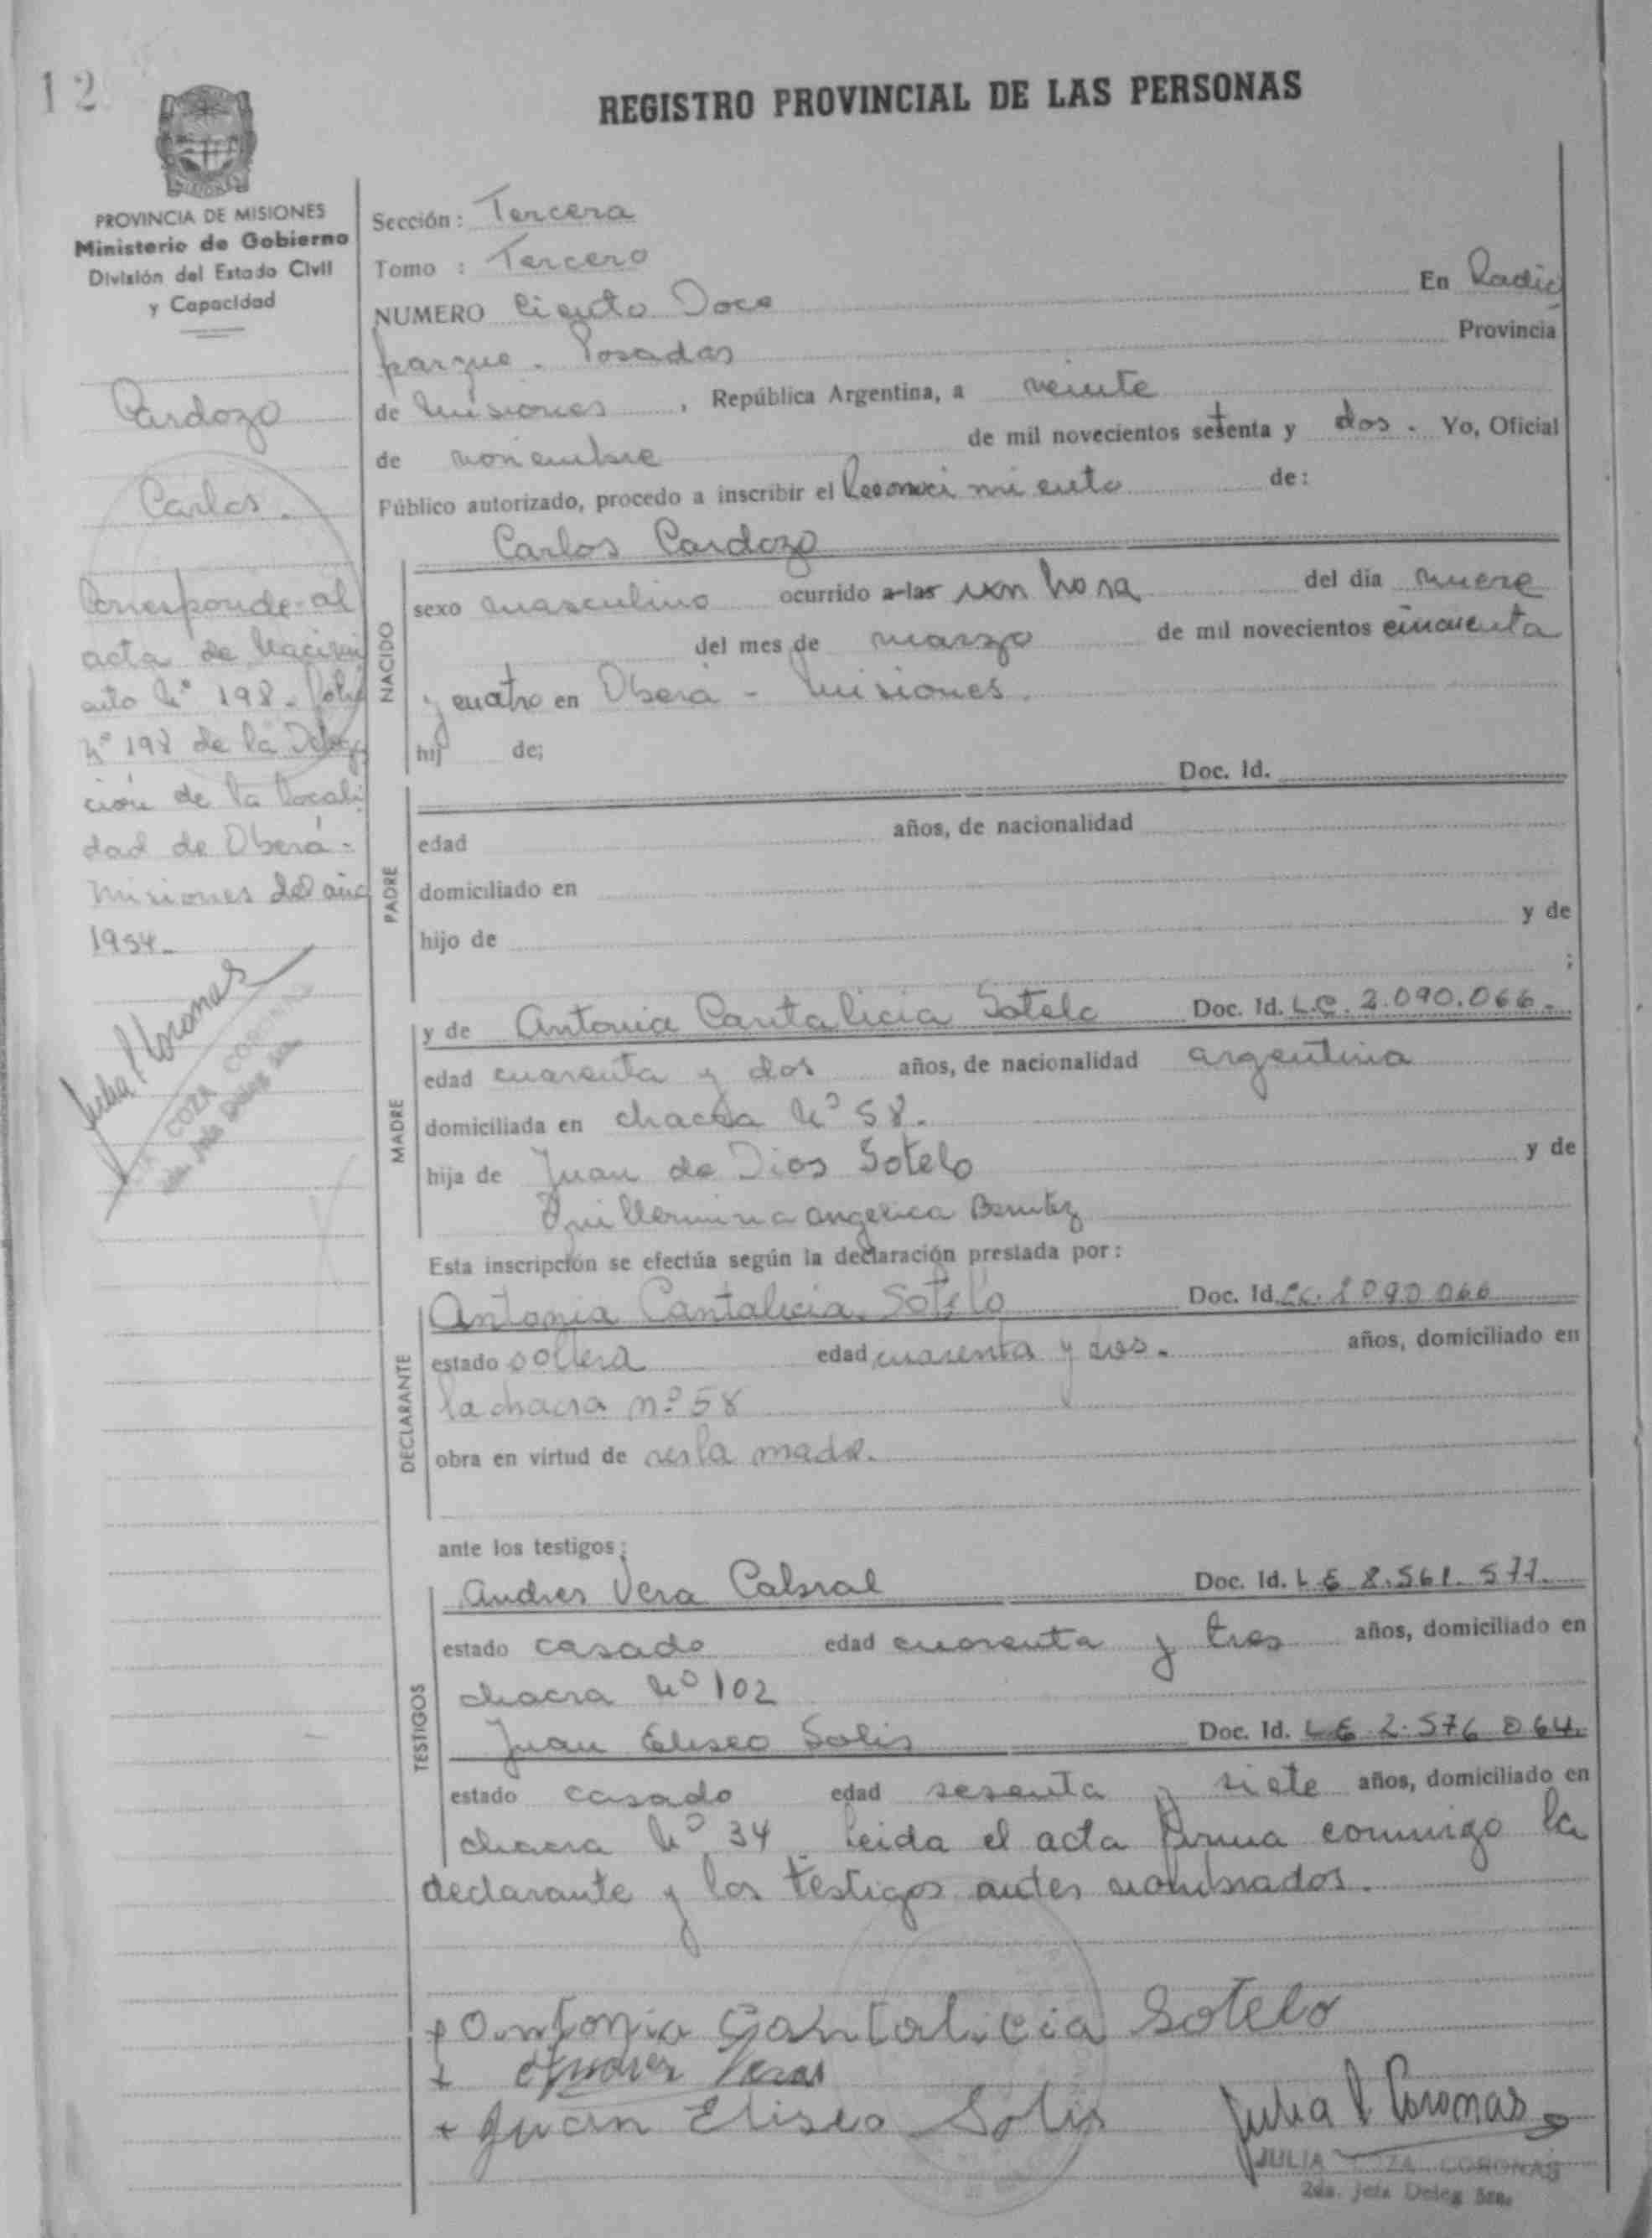 12
REGISTRO PROVINCIAL DE LAS PERSONAS
PROVINCIA DE MISIONES
Ministerio de Gobierno
División del Estado Civil
y Capacidad
Cardozo
Carlos.
Corresponde al
acta de Nacimi
ento Nº 198. folio
Nº 198 de la Delega
ción de la Locali
dad de Oberá -
Misiones del año
1954.
COZA CORONAS
Sección: Tercera
Tomo : Tercero
NUMERO Ciento Doce En Radic
parque. Posadas Provincia
de Misiones, República Argentina, a veinte
de noviembre de mil novecientos setenta y dos. Yo, Oficial
Público autorizado, procedo a inscribir el Reconocimiento de:
Carlos Cardozo
NACIDO
sexo masculino ocurrido a las un hora del día nueve
del mes de marzo de mil novecientos cincuenta
y cuatro en Oberá - Misiones.
hij de;
PADRE
Doc. Id.
edad años, de nacionalidad
domiciliado en
hijo de y de
;
MADRE
y de Antonia Cantalicia Sotelo Doc. Id. L.C. 2.090.066.-
edad cuarenta y dos años, de nacionalidad argentina
domiciliada en chacra Nº 58.
hija de Juan de Dios Sotelo y de
Guillermina angelica Benitez
Esta inscripción se efectúa según la declaración prestada por:
DECLARANTE
Antonia Cantalicia Sotelo Doc. Id. LC. 2090066
estado soltera edad cuarenta y dos. años, domiciliado en
la chacra nº 58
obra en virtud de ser la madre.
ante los testigos;
TESTIGOS
Andres Vera Cabral Doc. Id. L E 8.561.577.
estado casado edad cuarenta y tres años, domiciliado en
chacra Nº 102
Juan Eliseo Solis Doc. Id. L E 2.576 064.
estado casado edad sesenta y siete años, domiciliado en
chacra Nº 34. Leida el acta firma conmigo la
declarante y los testigos antes nombrados.
+ Antonia Cantalicia Sotelo
+ Andres Vera
+ Juan Eliseo Solis
Julia Coronas
JULIA COZA CORONAS
2da. Jefa Deleg Secc.